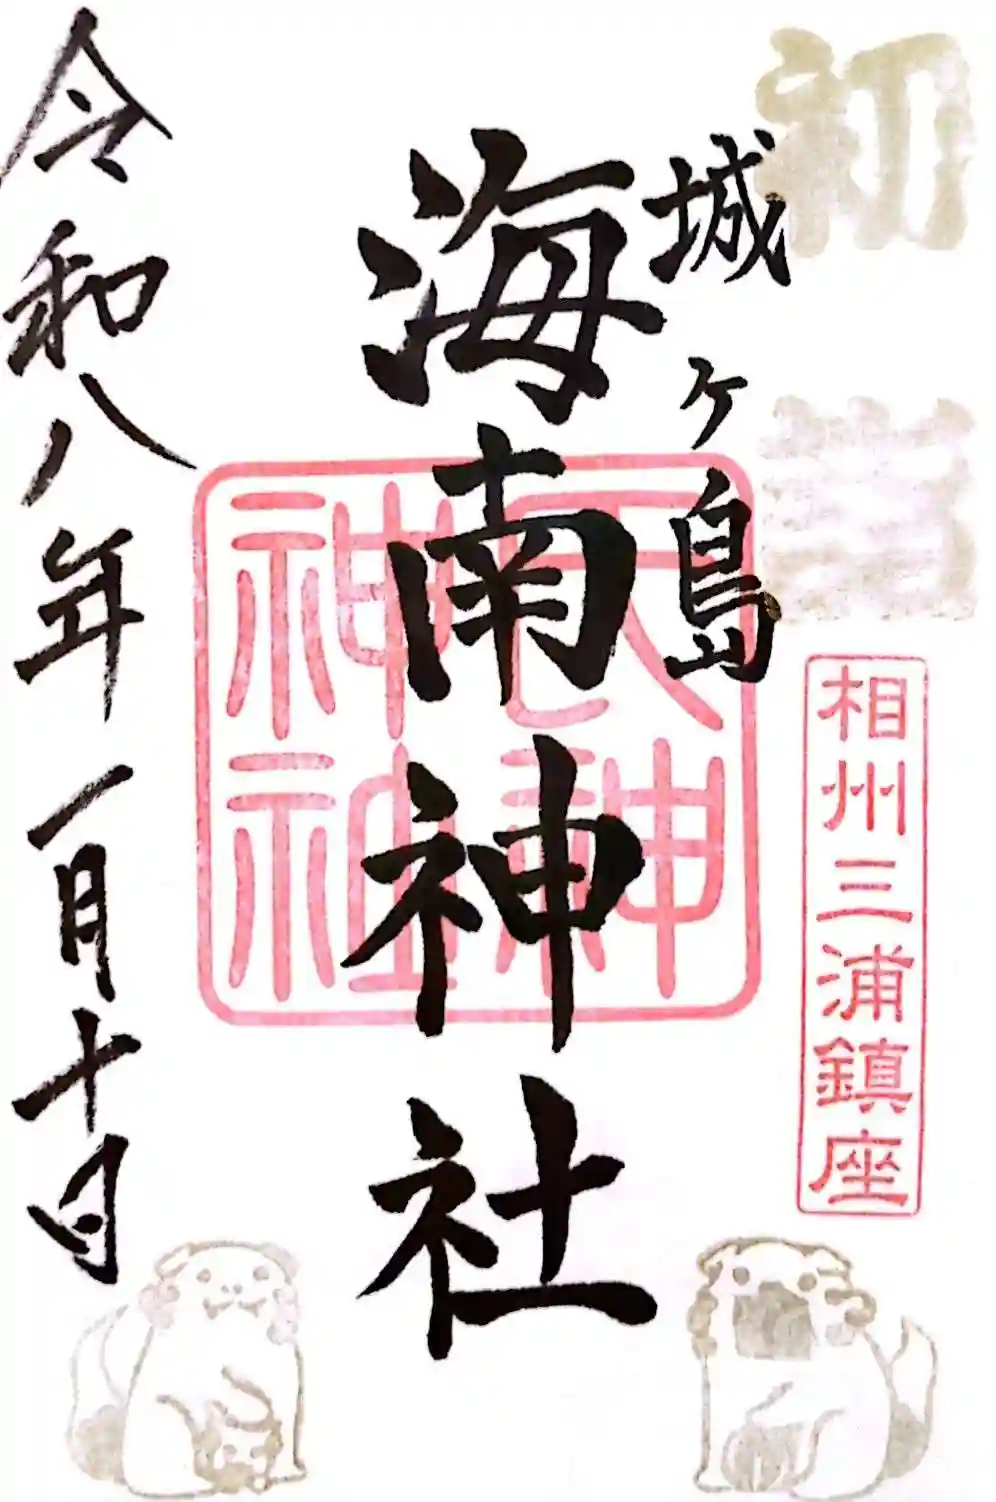 初詣
相州三浦鎮座
城ヶ島
海南神社
令和八年一月十日